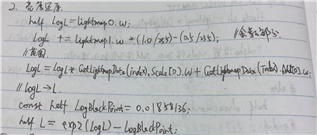 2. 亮度还原
half LogL = lightmap0.w;
LogL += lightmap1.w * (1.0/255) - (0.5/255); //余数部分
//范围
LogL = LogL * GetLightmapData(index).Scale[0].w + GetLightmapData(index).Add[0].w;
// logL → L
const half LogBlackPoint = 0.01858136;
half L = exp2(LogL) - LogBlackPoint;